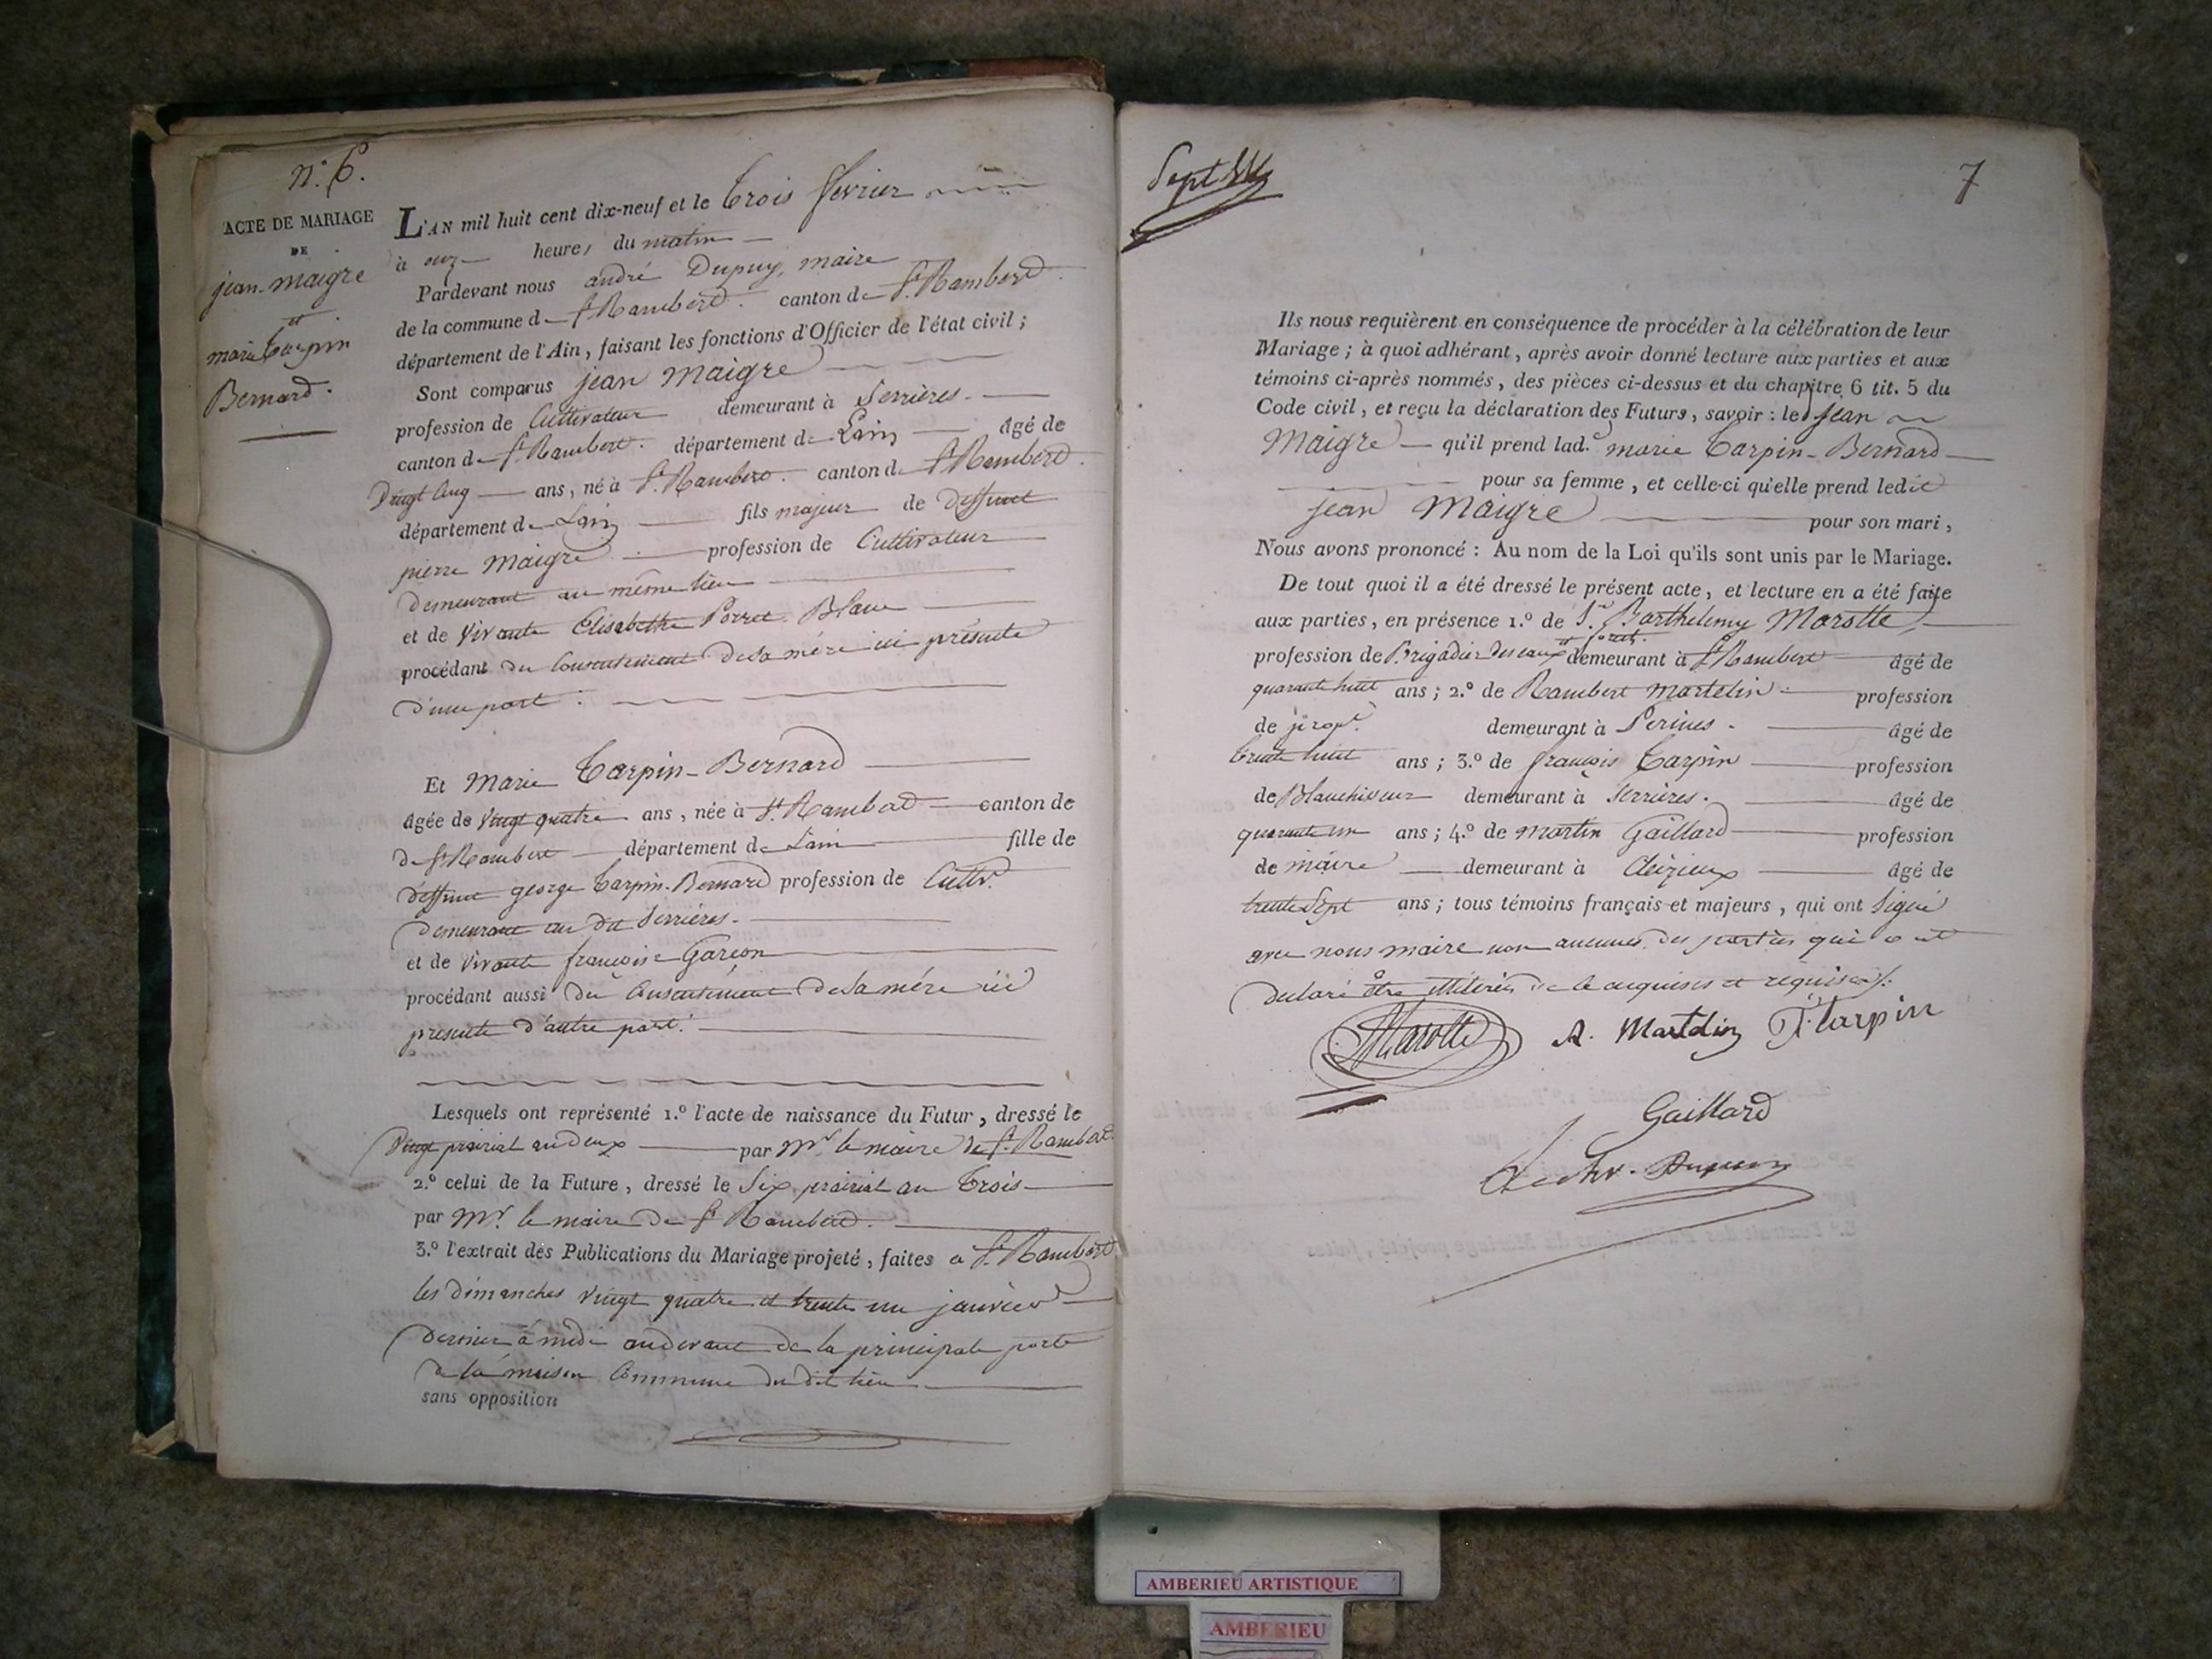 N.º 6.
ACTE DE MARIAGE
DE
jean maigre
et
marie Tarpin
Bernard.
L'AN mil huit cent dix-neuf et le trois fevrier
à onze heures du matin
Pardevant nous andré Dupuy, maire
de la commune de St Rambert. canton de St Rambert.
département de l'Ain, faisant les fonctions d'Officier de l'état civil;
Sont comparus jean maigre
profession de Cultivateur demeurant à Serrières.
canton de St Rambert. département de Lain âgé de
Vingt cinq ans, né à St Rambert. canton de St Rambert.
département de Lain fils majeur de deffunt
pierre maigre profession de Cultivateur
demeurant au même lieu
et de vivante Elisabethe Porret Blanc
procédant du Consentement de sa mére ici présente
d'une part.
Et Marie Tarpin-Bernard
âgée de vingt quatre ans, née à St Rambert canton de
de St Rambert département de Lain fille de
deffunt george Tarpin-Bernard profession de Cultr.
demeurant au dit Serrières.
et de vivante françoise Garcon
procédant aussi du Consentement de sa mére ici
presente d'autre part.
Lesquels ont représenté 1.º l'acte de naissance du Futur, dressé le
Vingt prairial an deux par Mr. le maire de St Rambert.
2.º celui de la Future, dressé le Six prairial an trois
par Mr. le maire de St Rambert.
3.º l'extrait des Publications du Mariage projeté, faites a St Rambert
les dimanches vingt quatre et trente un janvier
dernier à midi audevant de la principale porte
de la maison Commune du dit lieu
sans opposition
Sept
7
Ils nous requièrent en conséquence de procéder à la célébration de leur
Mariage; à quoi adhérant, après avoir donné lecture aux parties et aux
témoins ci-après nommés, des pièces ci-dessus et du chapitre 6 tit. 5 du
Code civil, et reçu la déclaration des Futurs, savoir: le jean
Maigre qu'il prend lad. marie Tarpin-Bernard
pour sa femme, et celle-ci qu'elle prend ledit
jean Maigre pour son mari,
Nous avons prononcé: Au nom de la Loi qu'ils sont unis par le Mariage.
De tout quoi il a été dressé le présent acte, et lecture en a été faite
aux parties, en présence 1.º de Sr. Barthelemy Marotte,
profession de Brigadier des eaux et forêts. demeurant à St Rambert âgé de
quarante huit ans; 2.º de Rambert martelin profession
de propre. demeurant à Serrières. âgé de
trente huit ans; 3.º de françois Tarpin profession
de Blanchisseur demeurant à Serrières. âgé de
quarante un ans; 4.º de martin Gaillard profession
de maire demeurant à Cleizieux âgé de
trente Sept ans; tous témoins français et majeurs, qui ont Signé
avec nous maire non aucunes des parties qui ont
declaré être illitérés de ce enquises et requises.
Marotte R. Martelin F. tarpin
Gaillard
Dupuy
AMBERIEU ARTISTIQUE
AMBERIEU